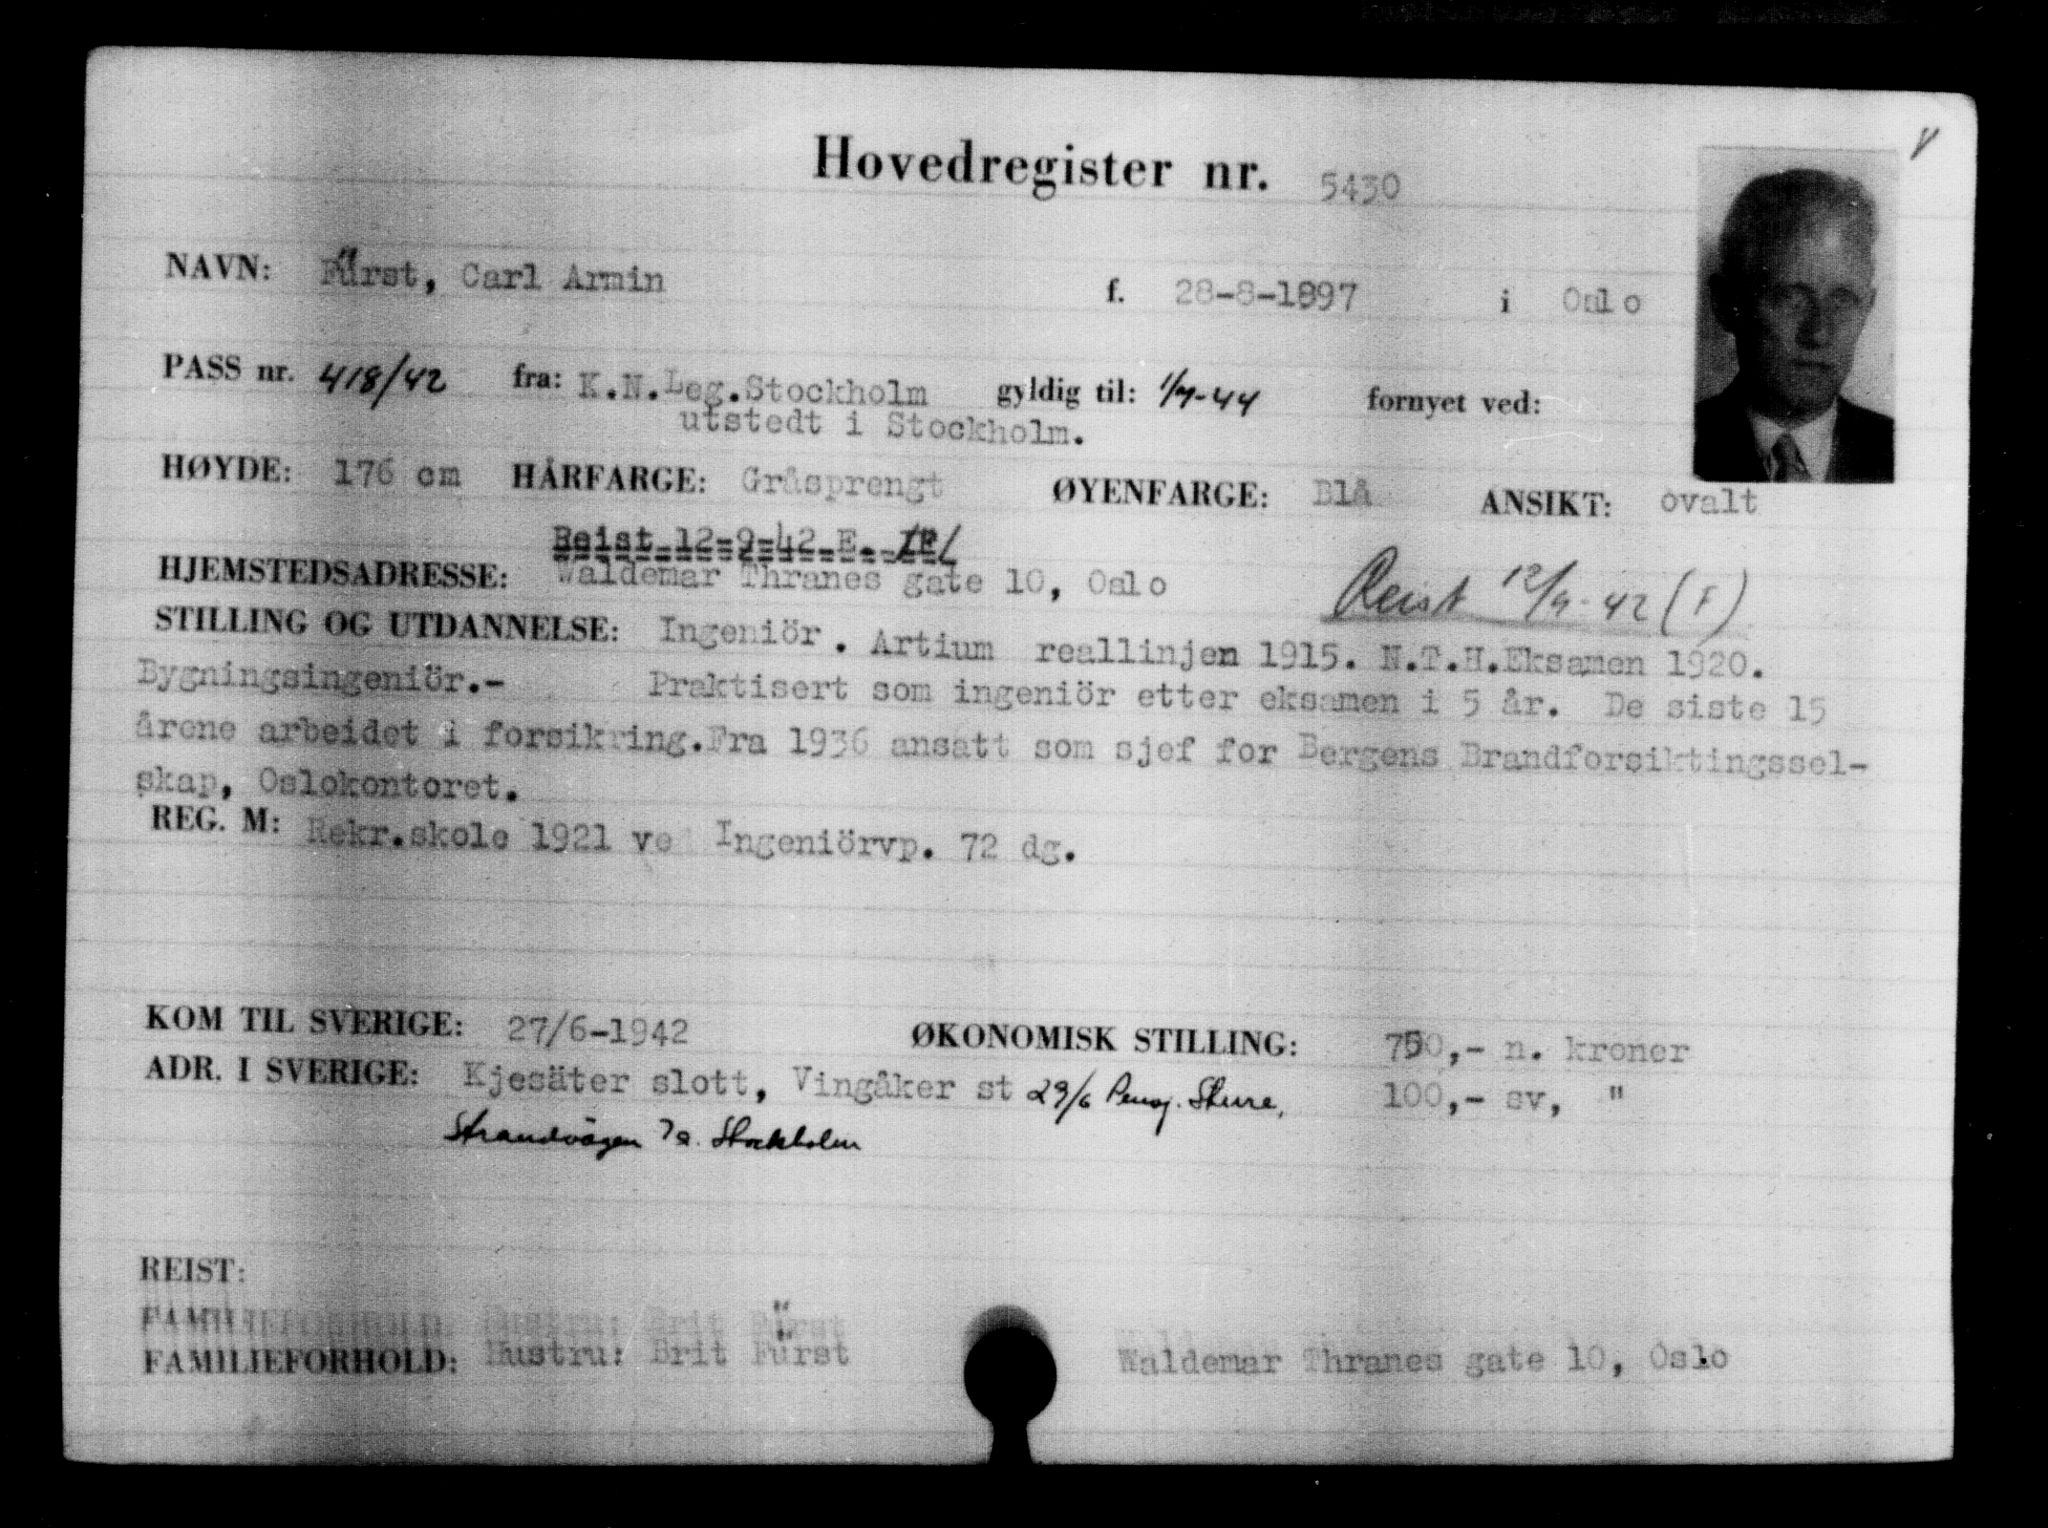 Hovedregister nr. 5430
NAVN: Fürst, Carl Armin f. 28-8-1897 i Oslo
PASS nr. 418/42 fra: K.N.Leg.Stockholm gyldig til: 1/7-44 fornyet ved:
utstedt i Stockholm.
HØYDE: 176 cm HÅRFARGE: Gråsprengt ØYENFARGE: Blå ANSIKT: ovalt
Reist 12-9-42 E.
HJEMSTEDSADRESSE: Waldemar Thranes gate 10, Oslo Reist 12/9-42 (F)
STILLING OG UTDANNELSE: Ingeniör. Artium reallinjen 1915. N.T.H.Eksamen 1920.
Bygningsingeniör.- Praktisert som ingeniör etter eksamen i 5 år. De siste 15
årene arbeidet i forsikring.Fra 1936 ansatt som sjef for Bergens Brandforsiktingssel-
skap, Oslokontoret.
REG. M: Rekr.skole 1921 ved Ingeniörvp. 72 dg.
KOM TIL SVERIGE: 27/6-1942 ØKONOMISK STILLING: 750,- n. kroner
ADR. I SVERIGE: Kjesäter slott, Vingåker st 29/6 Pensj. Sture, 100,- sv, "
Strandvägen 7a. Stockholm
REIST:
FAMILIEFORHOLD: Hustru: Brit Fürst
FAMILIEFORHOLD: Hustru: Brit Fürst Waldemar Thranes gate 10, Oslo